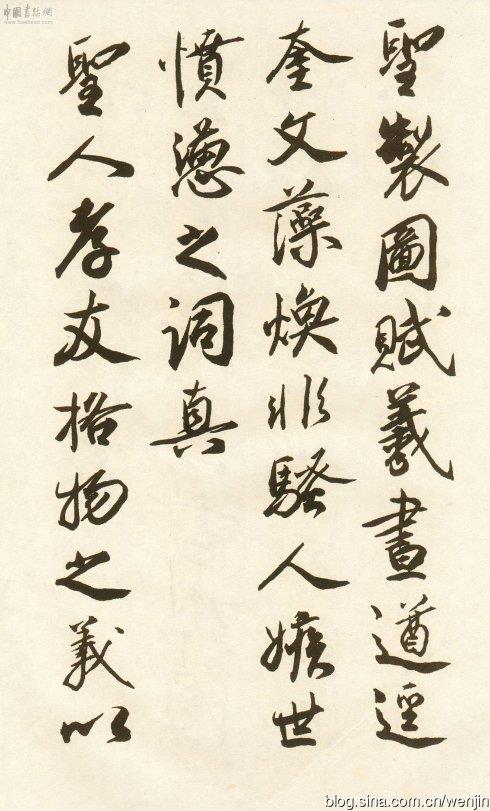 聖製圖賦羲畫遒逕
奎文藻煥非騷人嫉世
憤懣之詞真
聖人孝友格物之義以
中國書法網
blog.sina.com.cn/wenjin